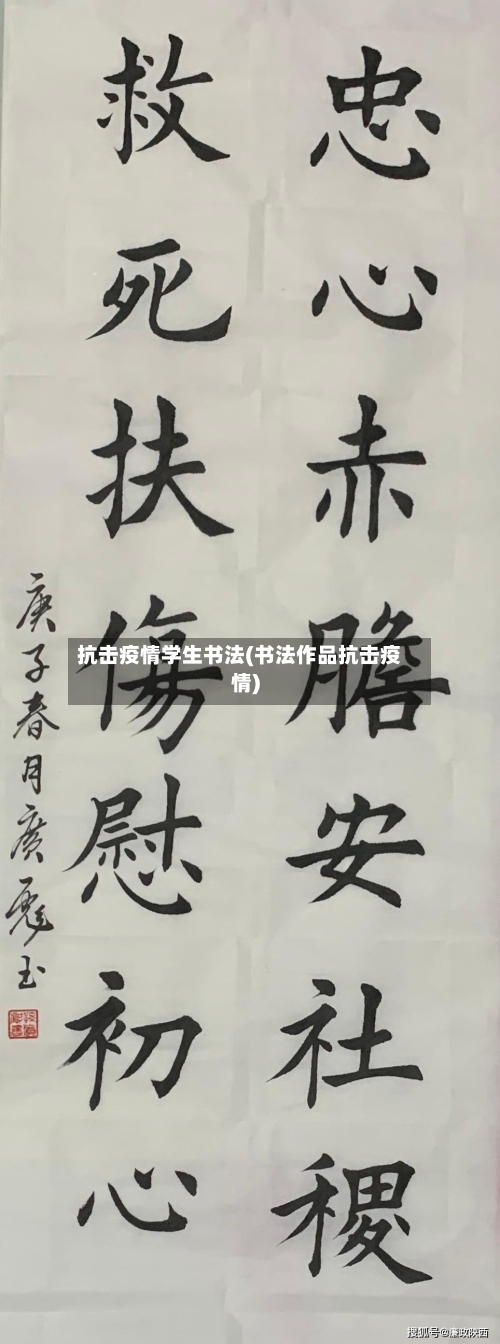 忠心赤膽安社稷
救死扶傷慰初心
庚子春月廣彪书
抗击疫情学生书法(书法作品抗击疫
情)
搜狐号@廉政陕西